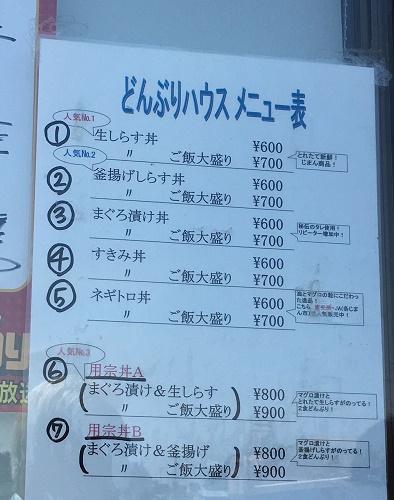 どんぶりハウス メニュー表
人気No.1
① 生しらす丼 ¥600
〃 ご飯大盛り ¥700
とれたて新鮮!
じまん商品!
人気No.2
② 釜揚げしらす丼 ¥600
〃 ご飯大盛り ¥700
③ まぐろ漬け丼 ¥600
〃 ご飯大盛り ¥700
秘伝のタレ使用!
リピーター増加中!
④ すきみ丼 ¥600
〃 ご飯大盛り ¥700
⑤ ネギトロ丼 ¥600
〃 ご飯大盛り ¥700
人気No.3
⑥ 用宗丼A
(まぐろ漬け&生しらす ¥800
〃 ご飯大盛り) ¥900
マグロ漬けと
とれたて生しらすがのってる!
2食どんぶり!
⑦ 用宗丼B
(まぐろ漬け&釜揚げ ¥800
〃 ご飯大盛り) ¥900
マグロ漬けと
釜揚げしらすがのってる!
2食どんぶり!
放送